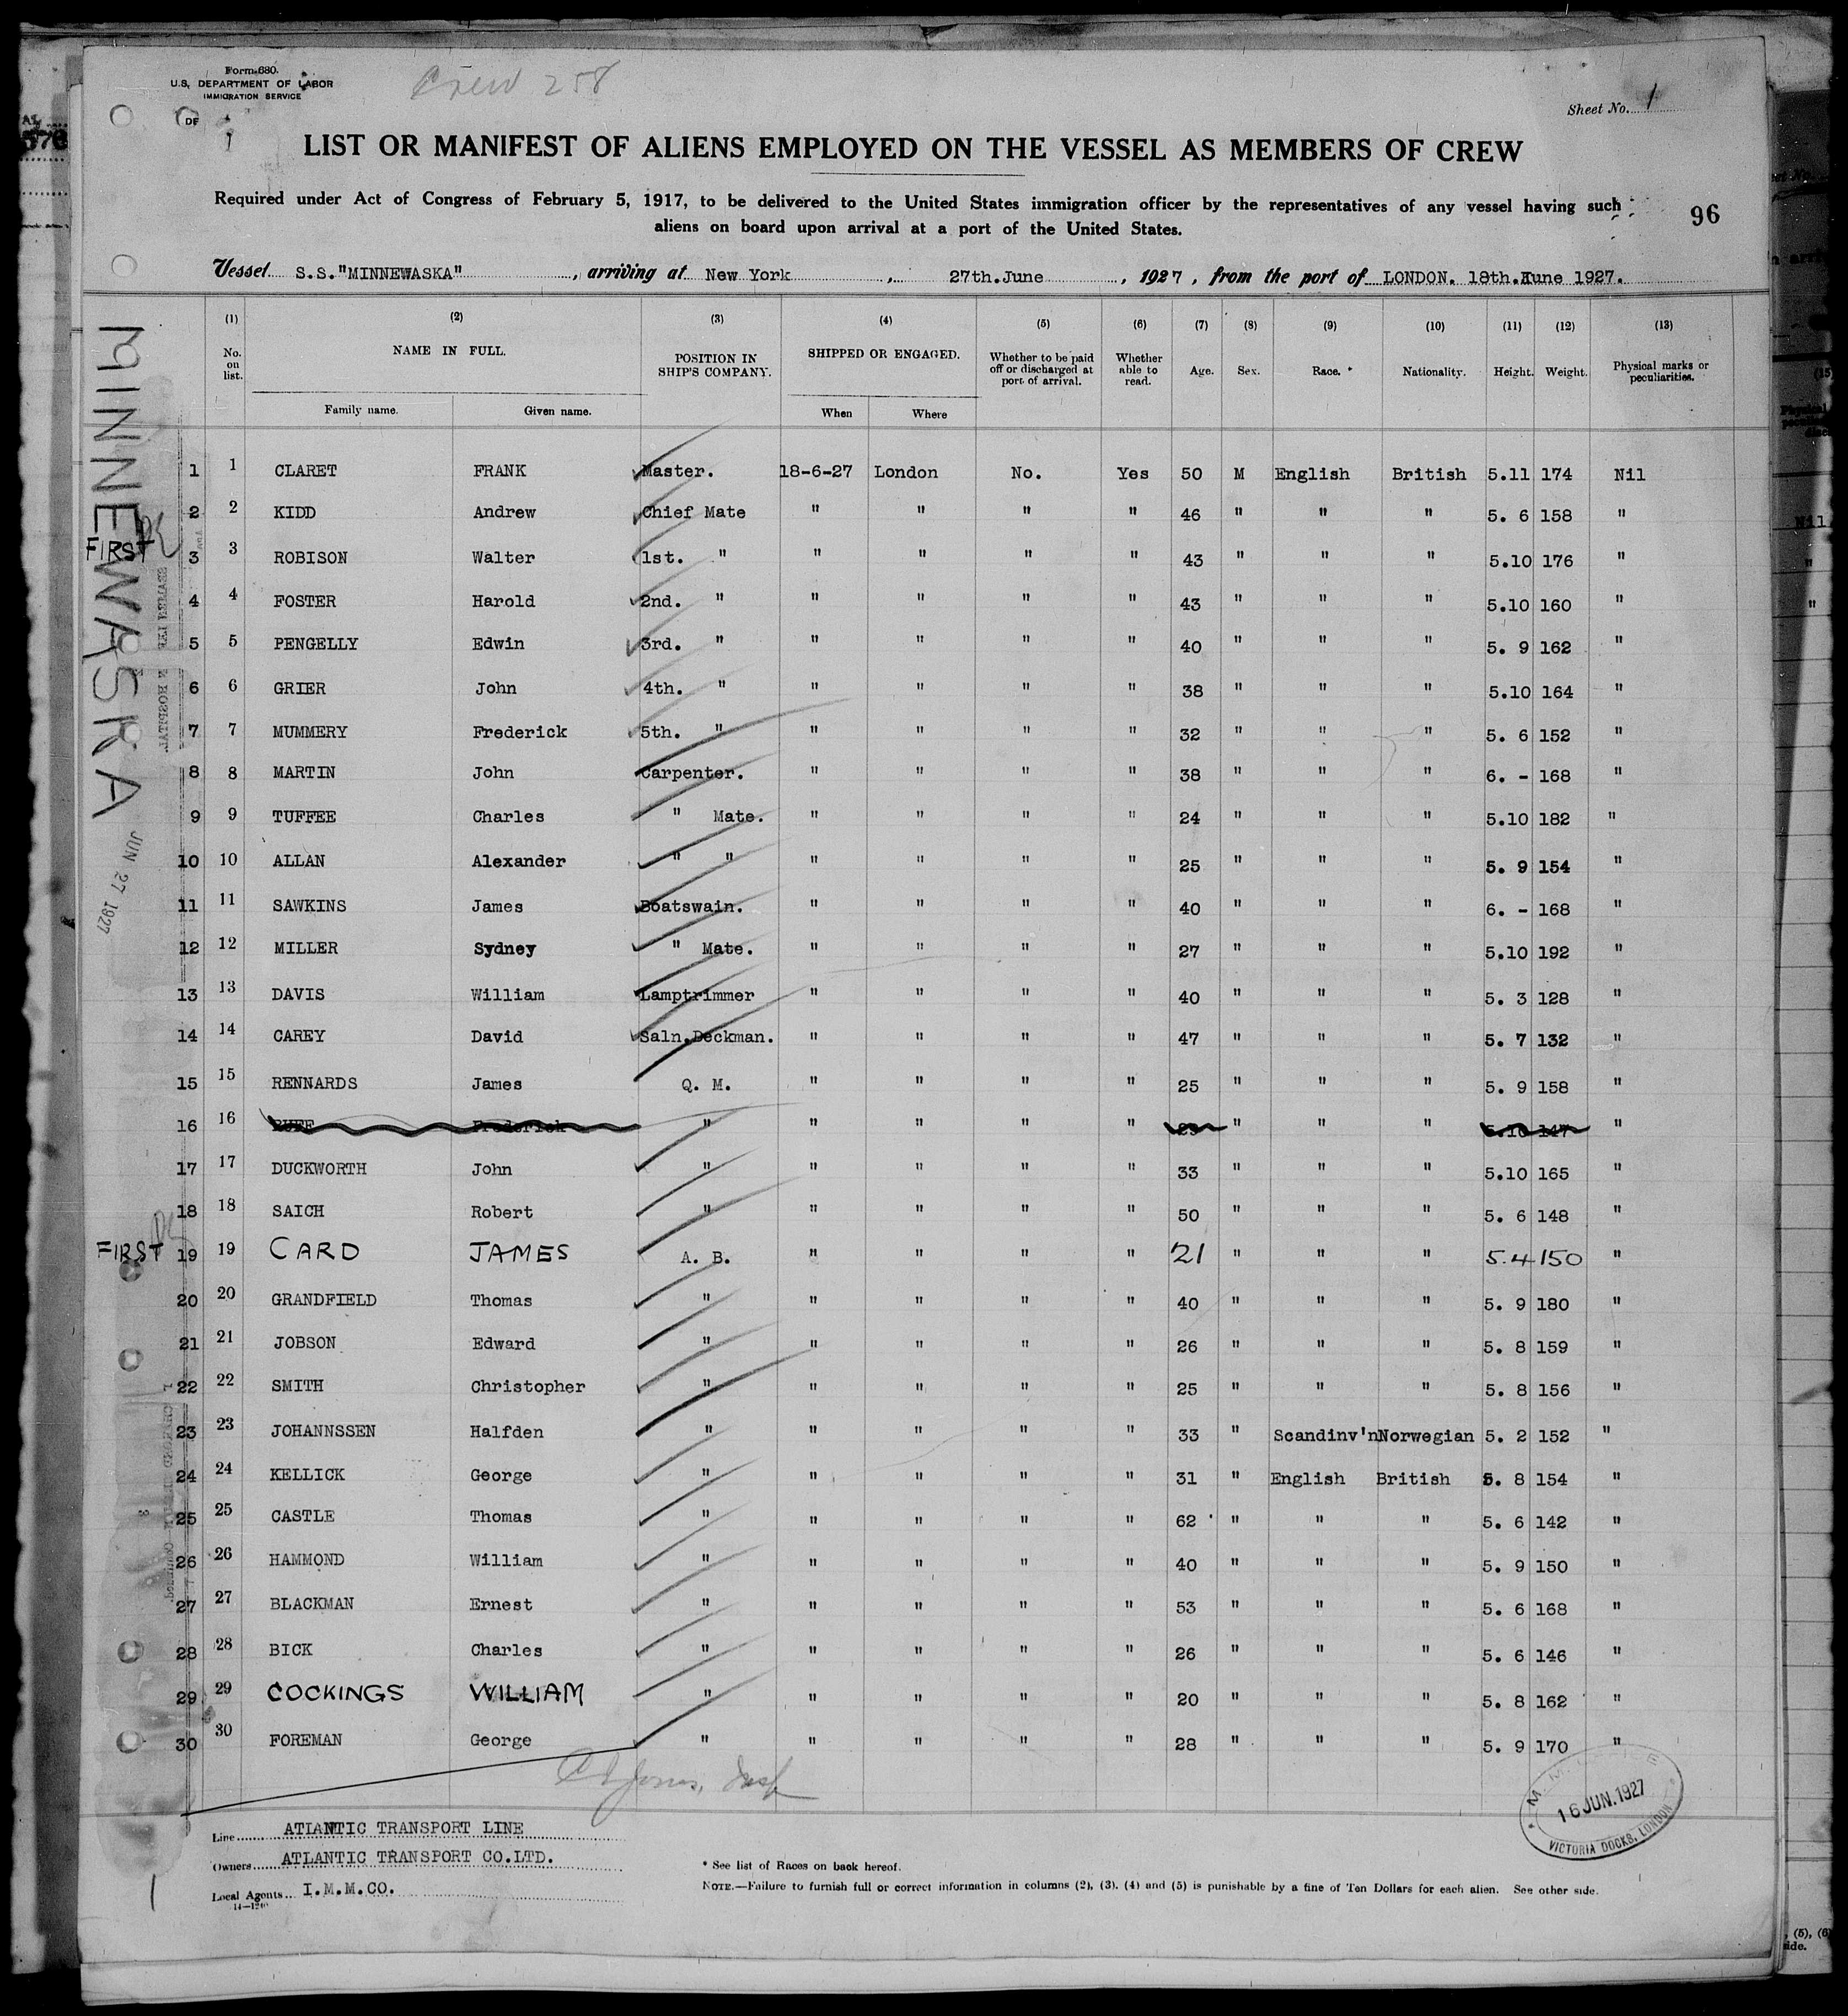 Form 680.
U.S. DEPARTMENT OF LABOR
IMMIGRATION SERVICE
Crew 258
Sheet No. 1
LIST OR MANIFEST OF ALIENS EMPLOYED ON THE VESSEL AS MEMBERS OF CREW
Required under Act of Congress of February 5, 1917, to be delivered to the United States immigration officer by the representatives of any vessel having such
aliens on board upon arrival at a port of the United States.
96
Vessel S.S."MINNEWASKA", arriving at New York, 27th.June, 1927, from the port of LONDON. 18th.June 1927.
(1) (2) (3) (4) (5) (6) (7) (8) (9) (10) (11) (12) (13)
No. on list. NAME IN FULL. POSITION IN SHIP'S COMPANY. SHIPPED OR ENGAGED. Whether to be paid off or discharged at port of arrival. Whether able to read. Age. Sex. Race. * Nationality. Height. Weight. Physical marks or peculiarities.
Family name. Given name. When Where
MINNEWASKA
JUN 27 1927
1 1 CLARET FRANK Master. 18-6-27 London No. Yes 50 M English British 5.11 174 Nil
2 2 KIDD Andrew Chief Mate " " " " 46 " " " 5. 6 158 "
FIRST 3 3 ROBISON Walter 1st. " " " " " 43 " " " 5.10 176 "
4 4 FOSTER Harold 2nd. " " " " " 43 " " " 5.10 160 "
5 5 PENGELLY Edwin 3rd. " " " " " 40 " " " 5. 9 162 "
6 6 GRIER John 4th. " " " " " 38 " " " 5.10 164 "
7 7 MUMMERY Frederick 5th. " " " " " 32 " " " 5. 6 152 "
8 8 MARTIN John Carpenter. " " " " 38 " " " 6. - 168 "
9 9 TUFFEE Charles " Mate. " " " " 24 " " " 5.10 182 "
10 10 ALLAN Alexander " " " " " " 25 " " " 5. 9 154 "
11 11 SAWKINS James Boatswain. " " " " 40 " " " 6. - 168 "
12 12 MILLER Sydney " Mate. " " " " 27 " " " 5.10 192 "
13 13 DAVIS William Lamptrimmer " " " " 40 " " " 5. 3 128 "
14 14 CAREY David Saln.Deckman. " " " " 47 " " " 5. 7 132 "
15 15 RENNARDS James Q. M. " " " " 25 " " " 5. 9 158 "
16 16 Frederick " " " " " " " " 5.10 147 "
17 17 DUCKWORTH John " " " " " 33 " " " 5.10 165 "
18 18 SAICH Robert " " " " " 50 " " " 5. 6 148 "
FIRST 19 19 CARD JAMES A. B. " " " " 21 " " " 5.4 150 "
20 20 GRANDFIELD Thomas " " " " " 40 " " " 5. 9 180 "
21 21 JOBSON Edward " " " " " 26 " " " 5. 8 159 "
22 22 SMITH Christopher " " " " " 25 " " " 5. 8 156 "
23 23 JOHANNSSEN Halfden " " " " " 33 " Scandinv'n Norwegian 5. 2 152 "
24 24 KELLICK George " " " " " 31 " English British 5. 8 154 "
25 25 CASTLE Thomas " " " " " 62 " " " 5. 6 142 "
26 26 HAMMOND William " " " " " 40 " " " 5. 9 150 "
27 27 BLACKMAN Ernest " " " " " 53 " " " 5. 6 168 "
28 28 BICK Charles " " " " " 26 " " " 5. 6 146 "
29 29 COCKINGS WILLIAM " " " " " 20 " " " 5. 8 162 "
30 30 FOREMAN George " " " " " 28 " " " 5. 9 170 "
16 JUN.1927
VICTORIA DOCKS, LONDON
Line ATLANTIC TRANSPORT LINE
Owners ATLANTIC TRANSPORT CO.LTD.
Local Agents I.M.M.CO.
* See list of Races on back hereof.
NOTE.—Failure to furnish full or correct information in columns (2), (3), (4) and (5) is punishable by a fine of Ten Dollars for each alien. See other side.